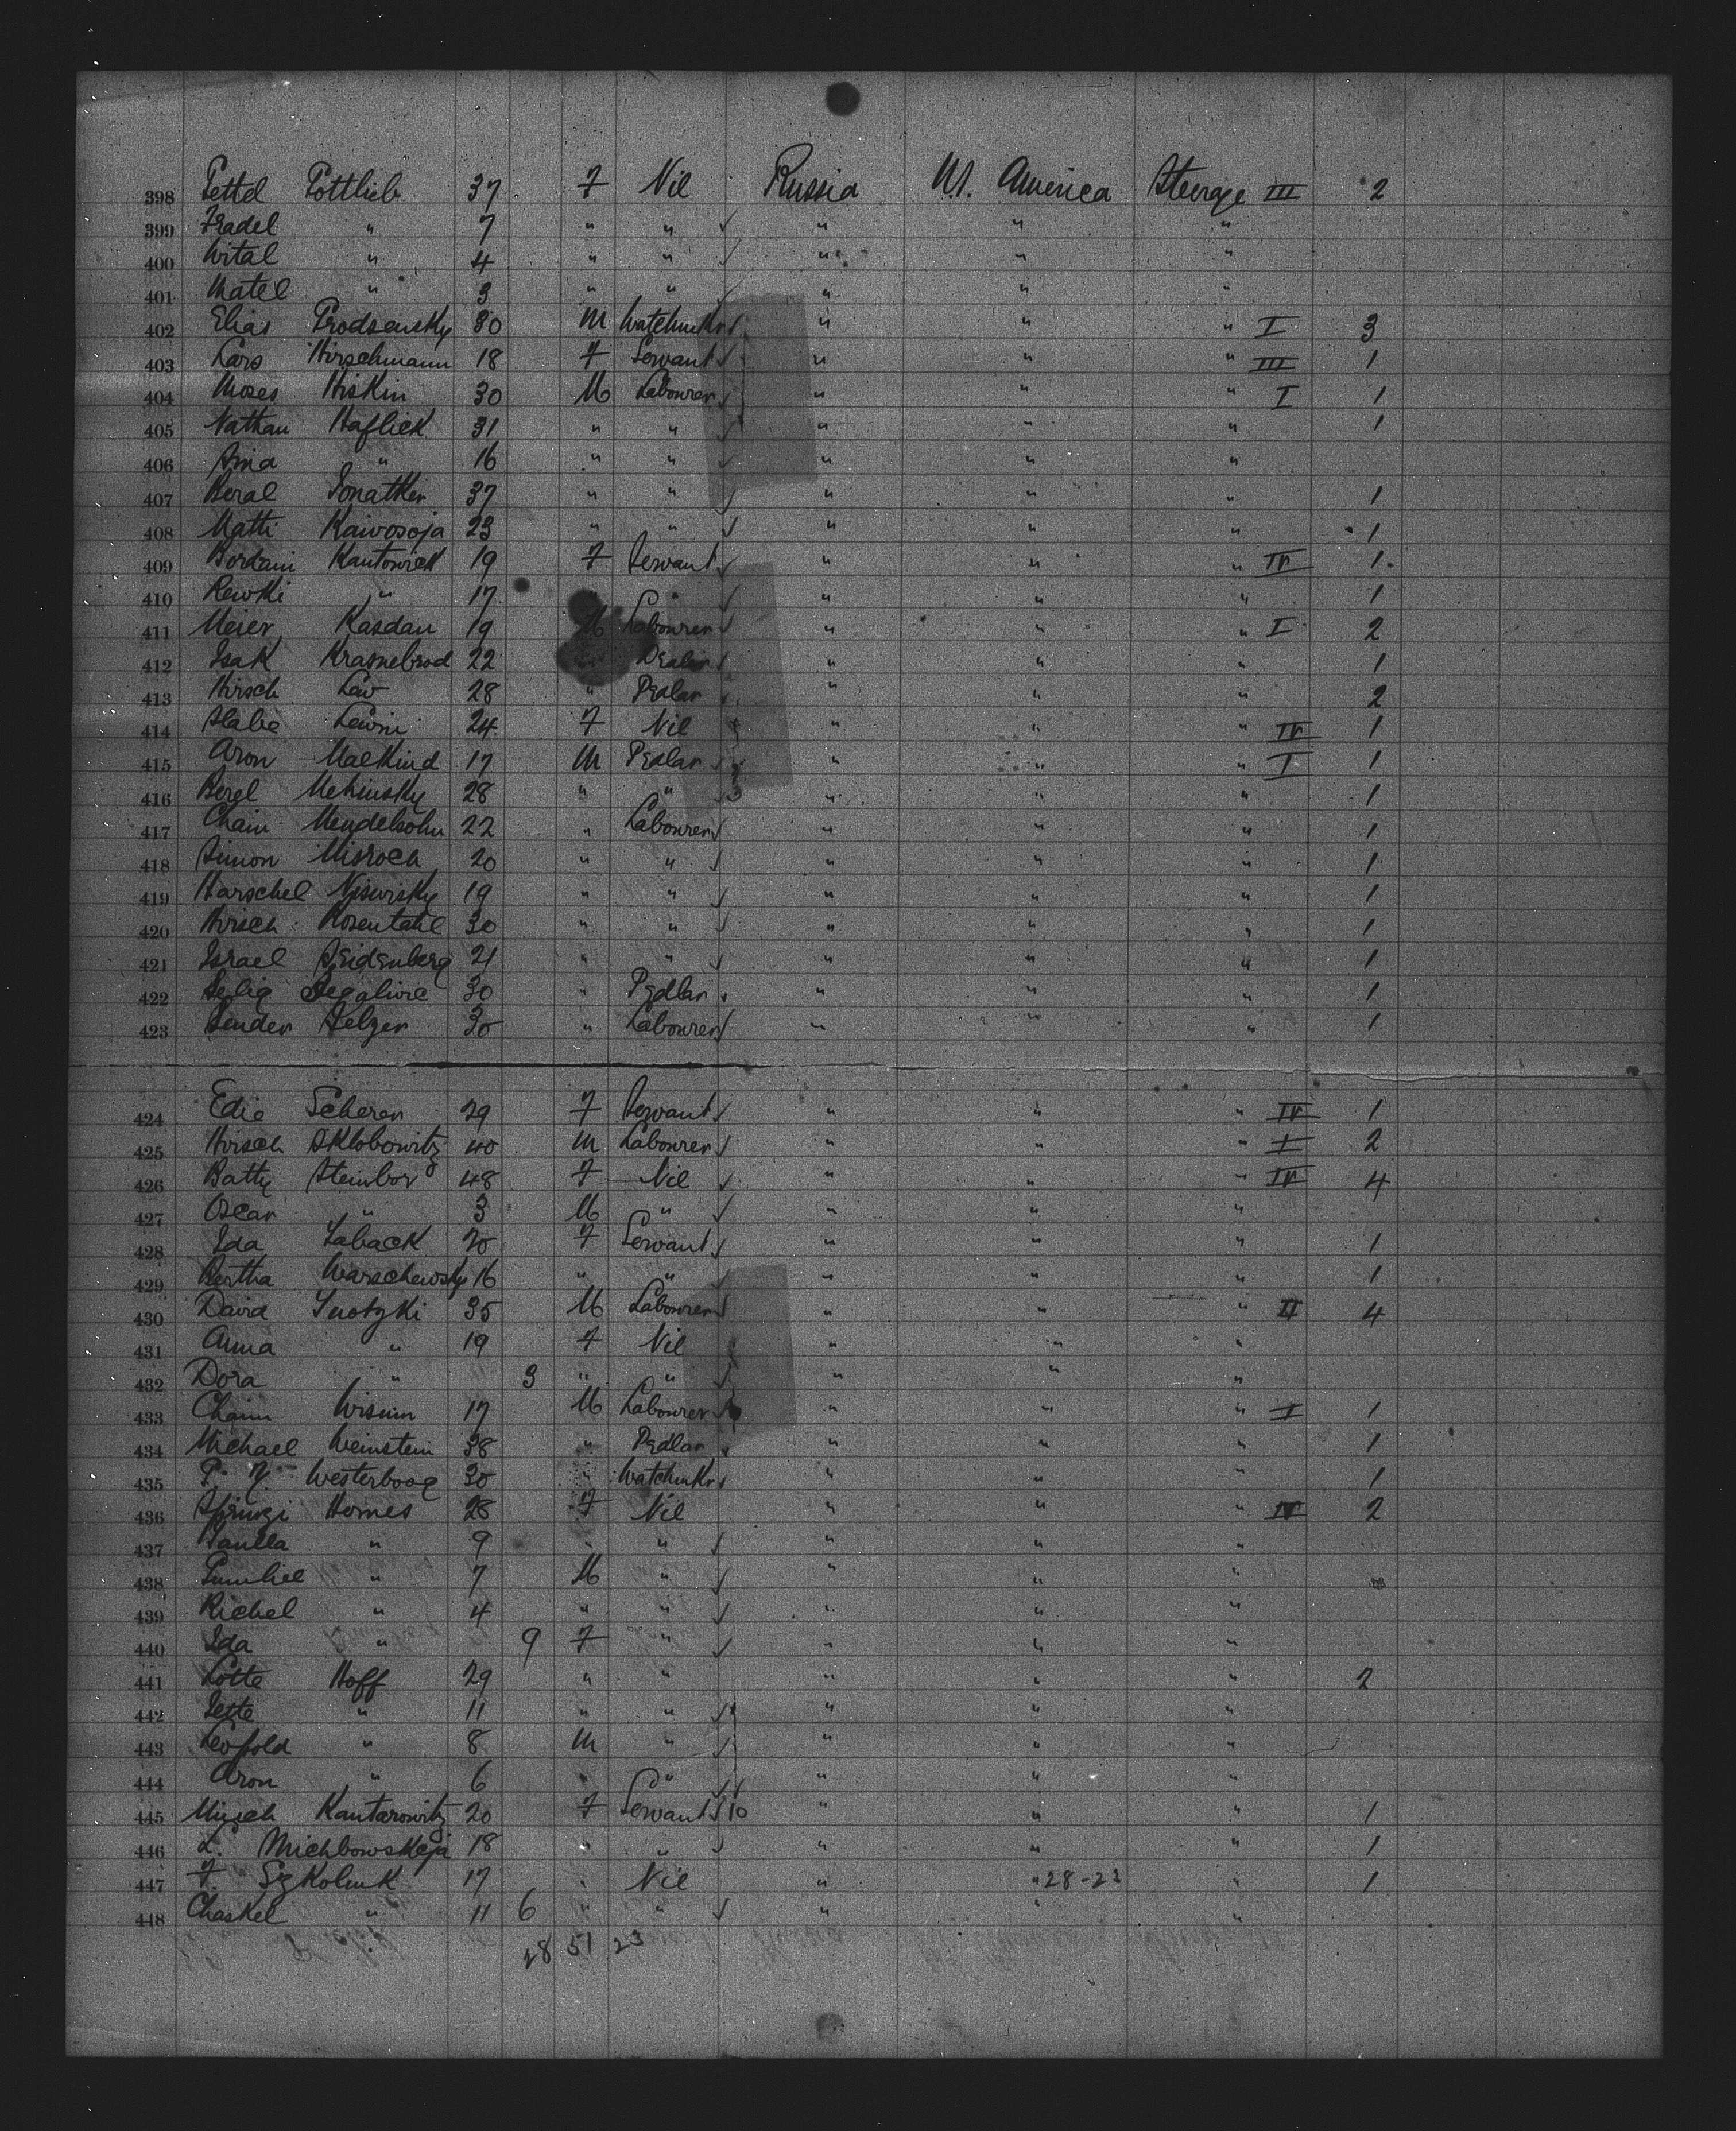 398 Pettd Gottlieb 37 F Nil Russia U.S. America Steerage III 2
399 Fradel " 7 " " " " "
400 Wital " 4 " " " " "
401 Matel " 3 " " " " "
402 Elias Grodzensky 30 M Watchmkr " " " I 3
403 Hirschmann 18 F Servant " " " III 1
404 Moses Hiskin 30 M Labourer " " " I 1
405 Nathan Haflick 31 " " " " " 1
406 " 16 " " " " "
407 Beral Jonatker 37 " " " " " 1
408 Matti Kaivosoja 23 " " " " " 1
409 Bordani Kantowick 19 F Servant " " " IV 1
410 Rewki " 17 " " " " " 1
411 Meier Kasdan 19 M Labourer " " " I 2
412 Isak Krasnebrod 22 " " " " 1
413 Hirsch Lew 28 " Pedlar " " " 2
414 Slabe Lewin 24 F Nil " " " IV 1
415 Aron Malkind 17 M Pedlar " " " I 1
416 Bergl Mehinsky 28 " " " " " 1
417 Chaim Mendelsohn 22 " Labourer " " " 1
418 Simon Misroch 20 " " " " " 1
419 Harschel Niswisky 19 " " " " " 1
420 Hirsch Rosentahl 30 " " " " " 1
421 Israel Seidenberg 21 " " " " " 1
422 Selig Segalivic 30 " Pedlar " " " 1
423 Sender Selzer 30 " Labourer " " " 1
424 Edie Scherer 29 F Servant " " " IV 1
425 Hirsch Sklobowitz 40 M Labourer " " " I 2
426 Batty Steinbor 48 F Nil " " " IV 4
427 Oscar " 3 M " " " "
428 Ida Taback 20 F Servant " " " 1
429 Bertha Warschewsky 16 " " " " " 1
430 David Snotzki 35 M Labourer " " " II 4
431 Anna " 19 F Nil " " "
432 Dora " 3 " " " " "
433 Chaim Wisum 17 M Labourer " " " I 1
434 Michael Weinstein 38 " Pedlar " " " 1
435 Westerboog 30 " Watchmkr " " " 1
436 Sprinzi Homes 28 F Nil " " " IV 2
437 " 9 " " " " "
438 " 7 M " " " "
439 Richel " 4 " " " " "
440 Ida " 9 F " " " "
441 Lotte Hoff 29 " " " " " 2
442 Jette " 11 " " " " "
443 Leopold " 8 M " " " "
444 Aron " 6 " " " " "
445 Kantarowitz 20 F Servant 10 " " " 1
446 L. Michbowskaja 18 " " " " " 1
447 F. Szkolnik 17 " Nil " " 28-23 " 1
448 Chaskel " 11 6 " " " " "
28 51 23